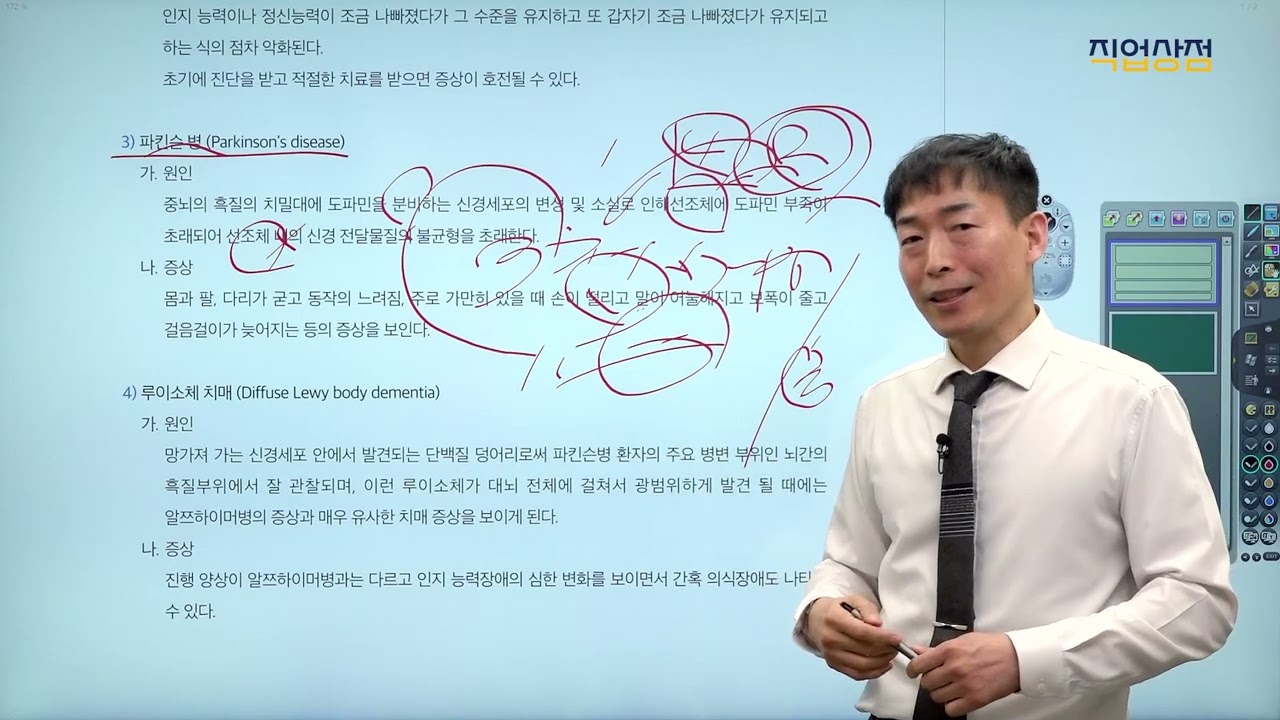 172 %
1 / 2
인지 능력이나 정신능력이 조금 나빠졌다가 그 수준을 유지하고 또 갑자기 조금 나빠졌다가 유지되고
하는 식의 점차 악화된다.
초기에 진단을 받고 적절한 치료를 받으면 증상이 호전될 수 있다.
직업상점
3) 파킨슨 병 (Parkinson's disease)
가. 원인
중뇌의 흑질의 치밀대에 도파민을 분비하는 신경세포의 변성 및 소실로 인해선조체에 도파민 부족이
초래되어 선조체 내의 신경 전달물질의 불균형을 초래한다.
나. 증상
몸과 팔, 다리가 굳고 동작의 느려짐, 주로 가만히 있을 때 손이 떨리고 말이 어눌해지고 보폭이 줄고
걸음걸이가 늦어지는 등의 증상을 보인다.
4) 루이소체 치매 (Diffuse Lewy body dementia)
가. 원인
망가져 가는 신경세포 안에서 발견되는 단백질 덩어리로써 파킨슨병 환자의 주요 병변 부위인 뇌간의
흑질부위에서 잘 관찰되며, 이런 루이소체가 대뇌 전체에 걸쳐서 광범위하게 발견 될 때에는
알쯔하이머병의 증상과 매우 유사한 치매 증상을 보이게 된다.
나. 증상
진행 양상이 알쯔하이머병과는 다르고 인지 능력장애의 심한 변화를 보이면서 간혹 의식장애도
수 있다.
EXIT